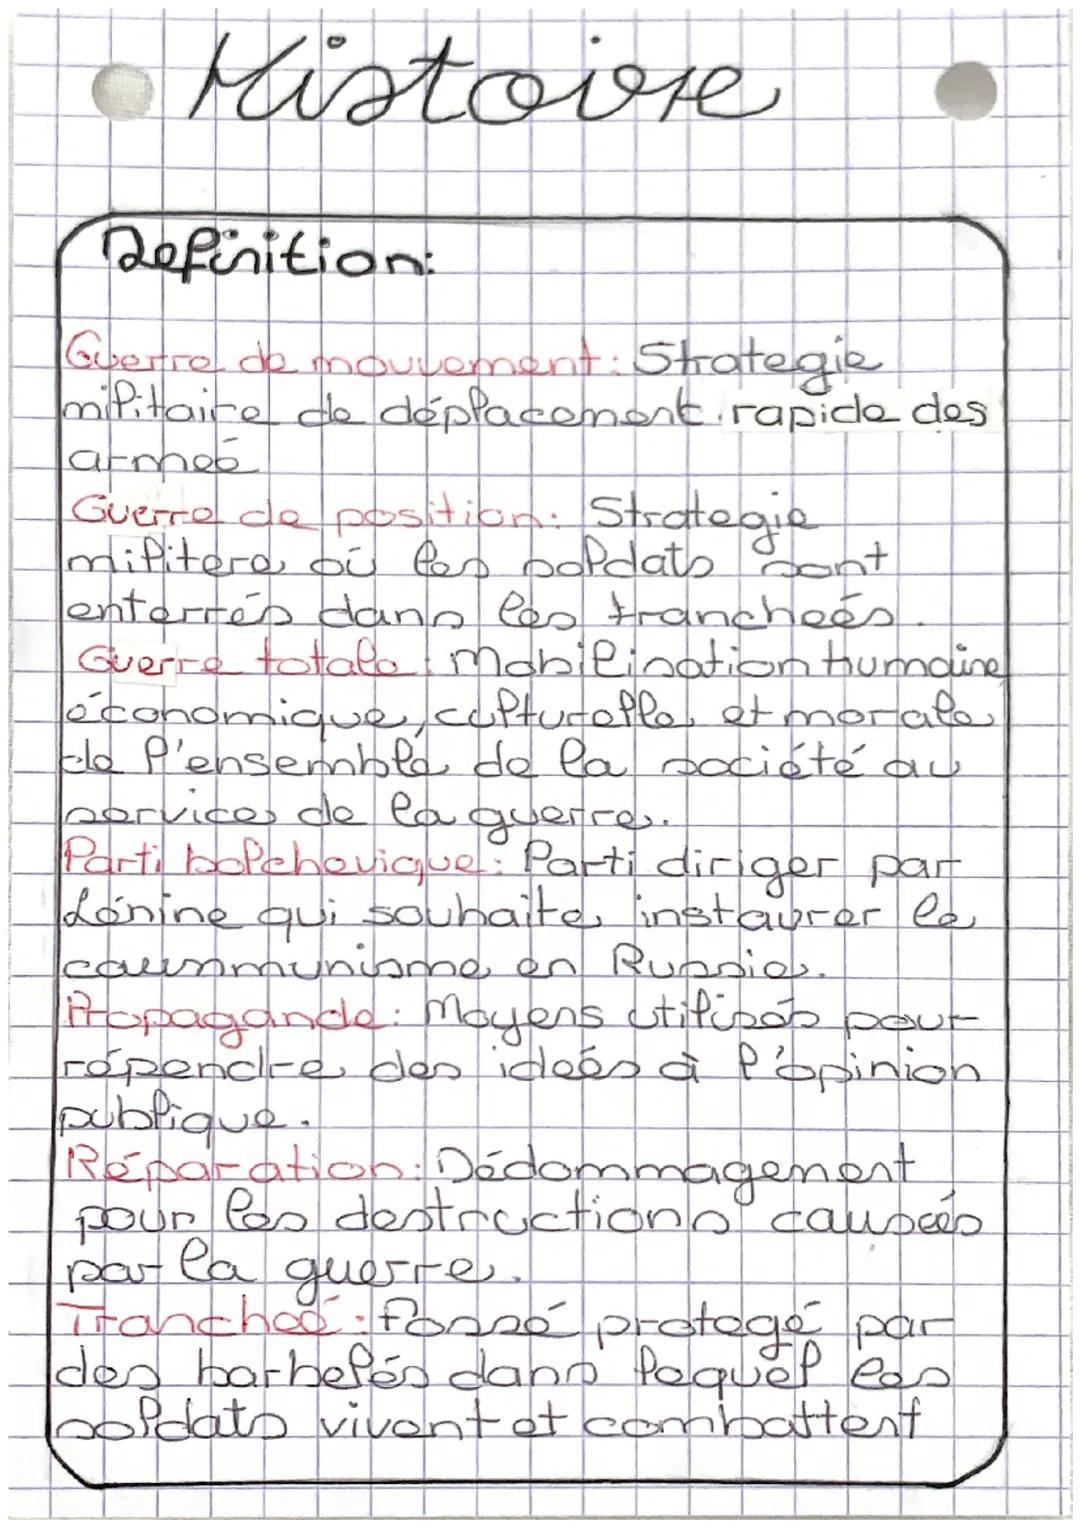 Histoire
Definition:
Guerre de mouvement: Strategie
militaire de déplacement rapide des
armeé
Guerre de position: Strategie
militere où les soldats sont
enterrés dans les trancheés.
Guerre totale: Mobilisation humaine
économique, culturelle et morale
de l'ensemble de la société au
service de la guerre.
Parti bolchevique: Parti diriger par
Lénine qui souhaite instaurer le
caummunisme en Russie.
Propagande: Moyens utilisés pour
répendre des ideés à l'opinion
publique.
Réparation: Dédommagement
pour les destructions causeés
par la guerre.
Trancheé: Fossé protegé par
des barbelés dans lequel les
soldats vivent et combattent